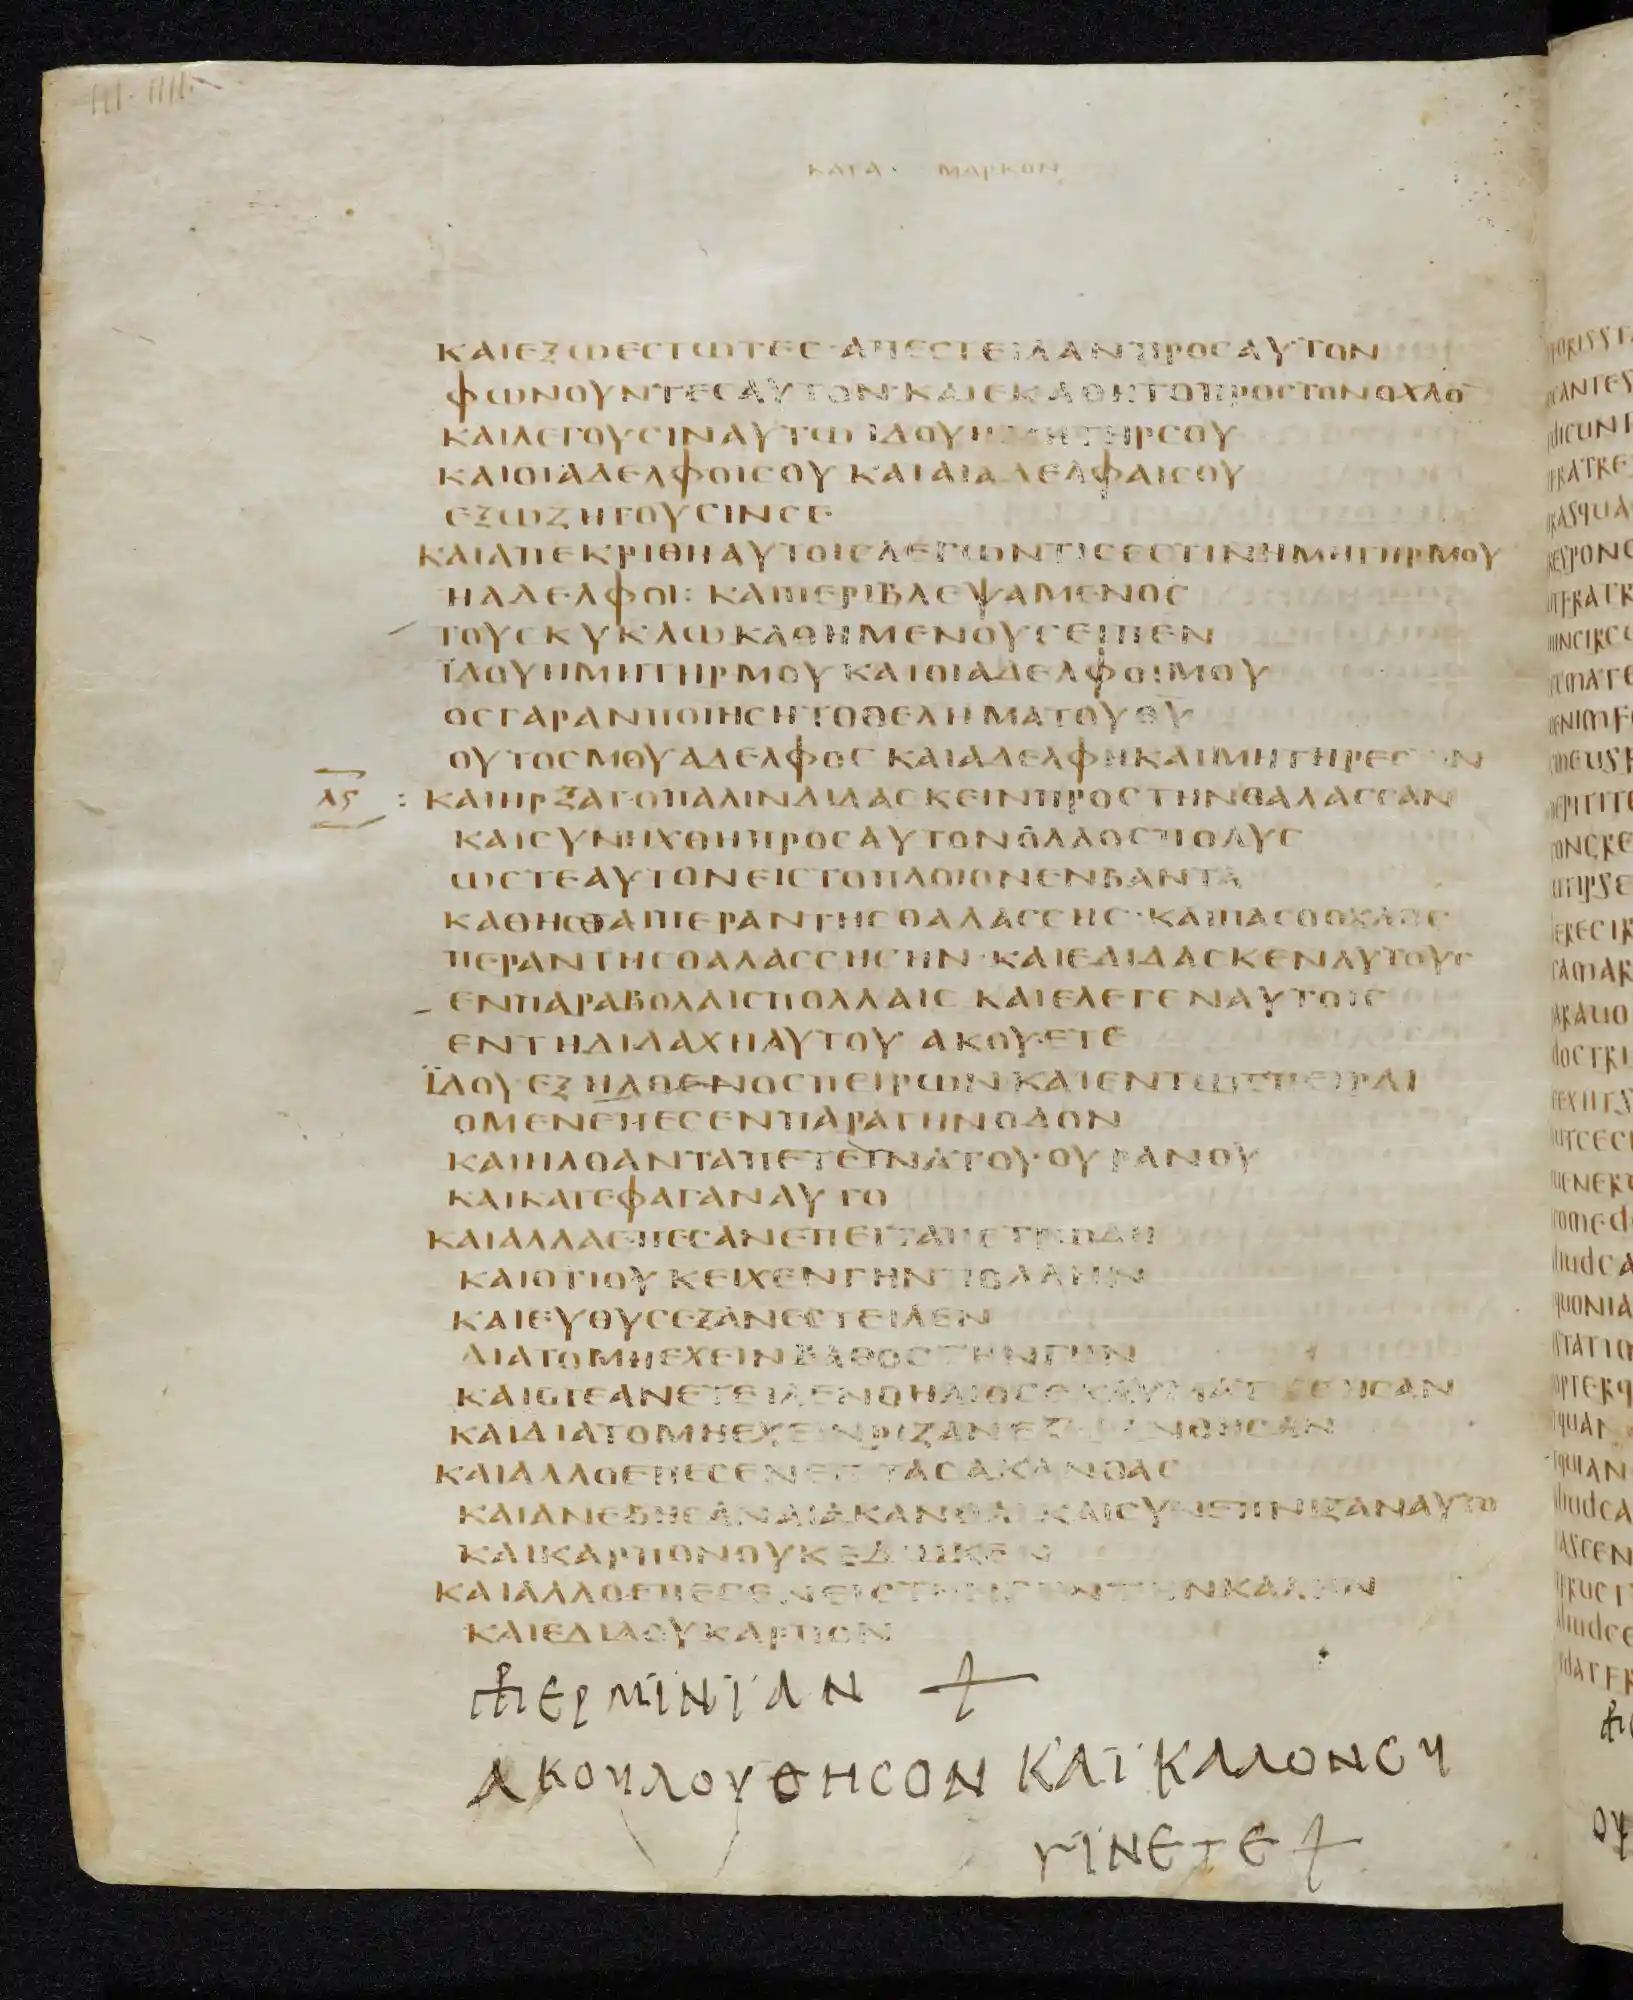 ΚΑΤΑ · ΜΑΡΚΟΝ
ΚΑΙΕΞΩΕСΤΩΤΕС·ΑΠΕСΤΕΙΛΑΝΠΡΟСΑΥΤΟΝ
ΦΩΝΟΥΝΤΕСΑΥΤΟΝ·ΚΑΙΕΚΑΘΗΤΟΠΡΟСΤΟΝΟΧΛΟ̅
ΚΑΙΛΕΓΟΥСΙΝΑΥΤΩ ΙΔΟΥΗΜΗΤΗΡСΟΥ
ΚΑΙΟΙΑΔΕΛΦΟΙСΟΥ ΚΑΙΑΙΑΔΕΛΦΑΙСΟΥ
ΕΞΩΖΗΤΟΥСΙΝСΕ
ΚΑΙΑΠΕΚΡΙΘΗΑΥΤΟΙСΛΕΓΩΝΤΙСΕСΤΙΝΗΜΗΤΗΡΜΟΥ
ΗΑΔΕΛΦΟΙ: ΚΑΙΠΕΡΙΒΛΕΨΑΜΕΝΟС
ΤΟΥСΚΥΚΛΩΚΑΘΗΜΕΝΟΥСΕΙΠΕΝ
ΪΔΟΥΗΜΗΤΗΡΜΟΥ ΚΑΙΟΙΑΔΕΛΦΟΙΜΟΥ
ΟСΓΑΡΑΝΠΟΙΗСΗΤΟΘΕΛΗΜΑΤΟΥΘ̅Υ̅
ΟΥΤΟСΜΟΥΑΔΕΛΦΟС ΚΑΙΑΔΕΛΦΗΚΑΙΜΗΤΗΡΕСΤΙΝ
ΛϚ : ΚΑΙΗΡΞΑΤΟΠΑΛΙΝΔΙΔΑСΚΕΙΝΠΡΟСΤΗΝΘΑΛΑССΑΝ
ΚΑΙСΥΝΗΧΘΗΠΡΟСΑΥΤΟΝΟΛΑΟСΠΟΛΥС
ΩСΤΕΑΥΤΟΝΕΙСΤΟΠΛΟΙΟΝΕΝΒΑΝΤΑ
ΚΑΘΗСΘΑΙΠΕΡΑΝΤΗСΘΑΛΑССΗС·ΚΑΙΠΑСΟΟΧΛΟС
ΠΕΡΑΝΤΗСΘΑΛΑССΗСΗΝ·ΚΑΙΕΔΙΔΑСΚΕΝΑΥΤΟΥС
ΕΝΠΑΡΑΒΟΛΑΙСΠΟΛΛΑΙС ΚΑΙΕΛΕΓΕΝΑΥΤΟΙС
ΕΝΤΗΔΙΔΑΧΗΑΥΤΟΥ ΑΚΟΥΕΤΕ
ΪΔΟΥΕΞΗΛΘΕΝΟСΠΕΙΡΩΝ ΚΑΙΕΝΤΩСΠΕΙΡΑΙ
ΟΜΕΝΕΠΕСΕΝΠΑΡΑΤΗΝΟΔΟΝ
ΚΑΙΗΛΘΑΝΤΑΠΕΤΕΙΝΑΤΟΥΟΥΡΑΝΟΥ
ΚΑΙΚΑΤΕΦΑΓΑΝΑΥΤΟ
ΚΑΙΑΛΛΑΕΠΕСΑΝΕΠΕΙΤΑΠΕΤΡΩΔΗ
ΚΑΙΟΤΙΟΥΚΕΙΧΕΝΓΗΝΠΟΛΛΗΝ
ΚΑΙΕΥΘΥСΕΞΑΝΕСΤΕΙΛΕΝ
ΔΙΑΤΟΜΗΕΧΕΙΝΒΑΘΟСΤΗΝΓΗΝ
ΚΑΙΟΤΕΑΝΕΤΕΙΛΕΝΟΗΛΙΟС
ΚΑΙΔΙΑΤΟΜΗΕΧΕΙΝΡΙΖΑΝΕΞΗΡΑΝΘΗСΑΝ
ΚΑΙΑΛΛΟΕΠΕСΕΝΕΠΙΤΑСΑΚΑΝΘΑС
ΚΑΙΑΝΕΒΗСΑΝΑΙΑΚΑΝΘΑΙ ΚΑΙСΥΝΕΠΝΙΞΑΝΑΥΤΟ
ΚΑΙΚΑΡΠΟΝΟΥΚΕΔΩΚΕΝ
ΚΑΙΑΛΛΟΕΠΕСΕΝΕΙСΤΗΝΓΗΝΤΗΝΚΑΛΗΝ
ΚΑΙΕΔΙΔΟΥΚΑΡΠΟΝ
ΕΡΜΙΝΙΑΝ +
ΑΚΟΥΛΟΥΘΗСΟΝ ΚΑΙ ΚΑΛΟΝ СΥ
ΓΙΝΕΤΕ +